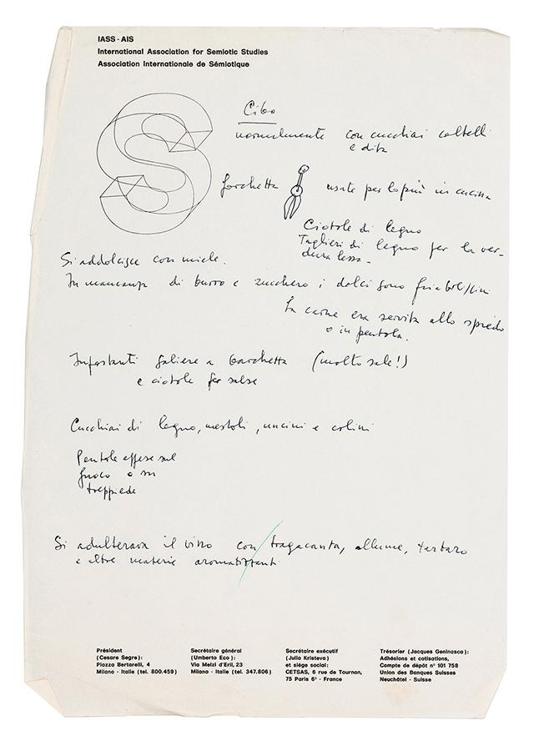 IASS - AIS
International Association for Semiotic Studies
Association Internationale de Sémiotique
Cibo
normalmente con cucchiai coltelli
e dita
forchetta usate per lo più in cucina
Ciotole di legno
Taglieri di legno per la ver-
dura lessa -
Si addolcisce con miele.
In mancanza di burro e zucchero i dolci sono
La carne era servita allo spiedo
o in pentola.
Importanti saliere a barchetta (molto sale!)
e ciotole per salse
Cucchiai di legno, mestoli, uncini e colini
Pentole appese sul
fuoco o su
treppiede
Si adulterava il vino con tragacanta, allume, tartaro
e altre materie aromatizzanti
Président
(Cesare Segre):
Piazza Bertarelli, 4
Milano - Italie (tel. 800.459)
Secrétaire général
(Umberto Eco):
Via Melzi d'Eril, 23
Milano - Italie (tel. 347.806)
Secrétaire exécutif
(Julia Kristeva)
et siège social:
CETSAS, 6 rue de Tournon,
75 Paris 6e - France
Trésorier (Jacques Geninasca):
Adhésions et cotisations,
Compte de dépôt n° 101 758
Union des Banques Suisses
Neuchâtel - Suisse